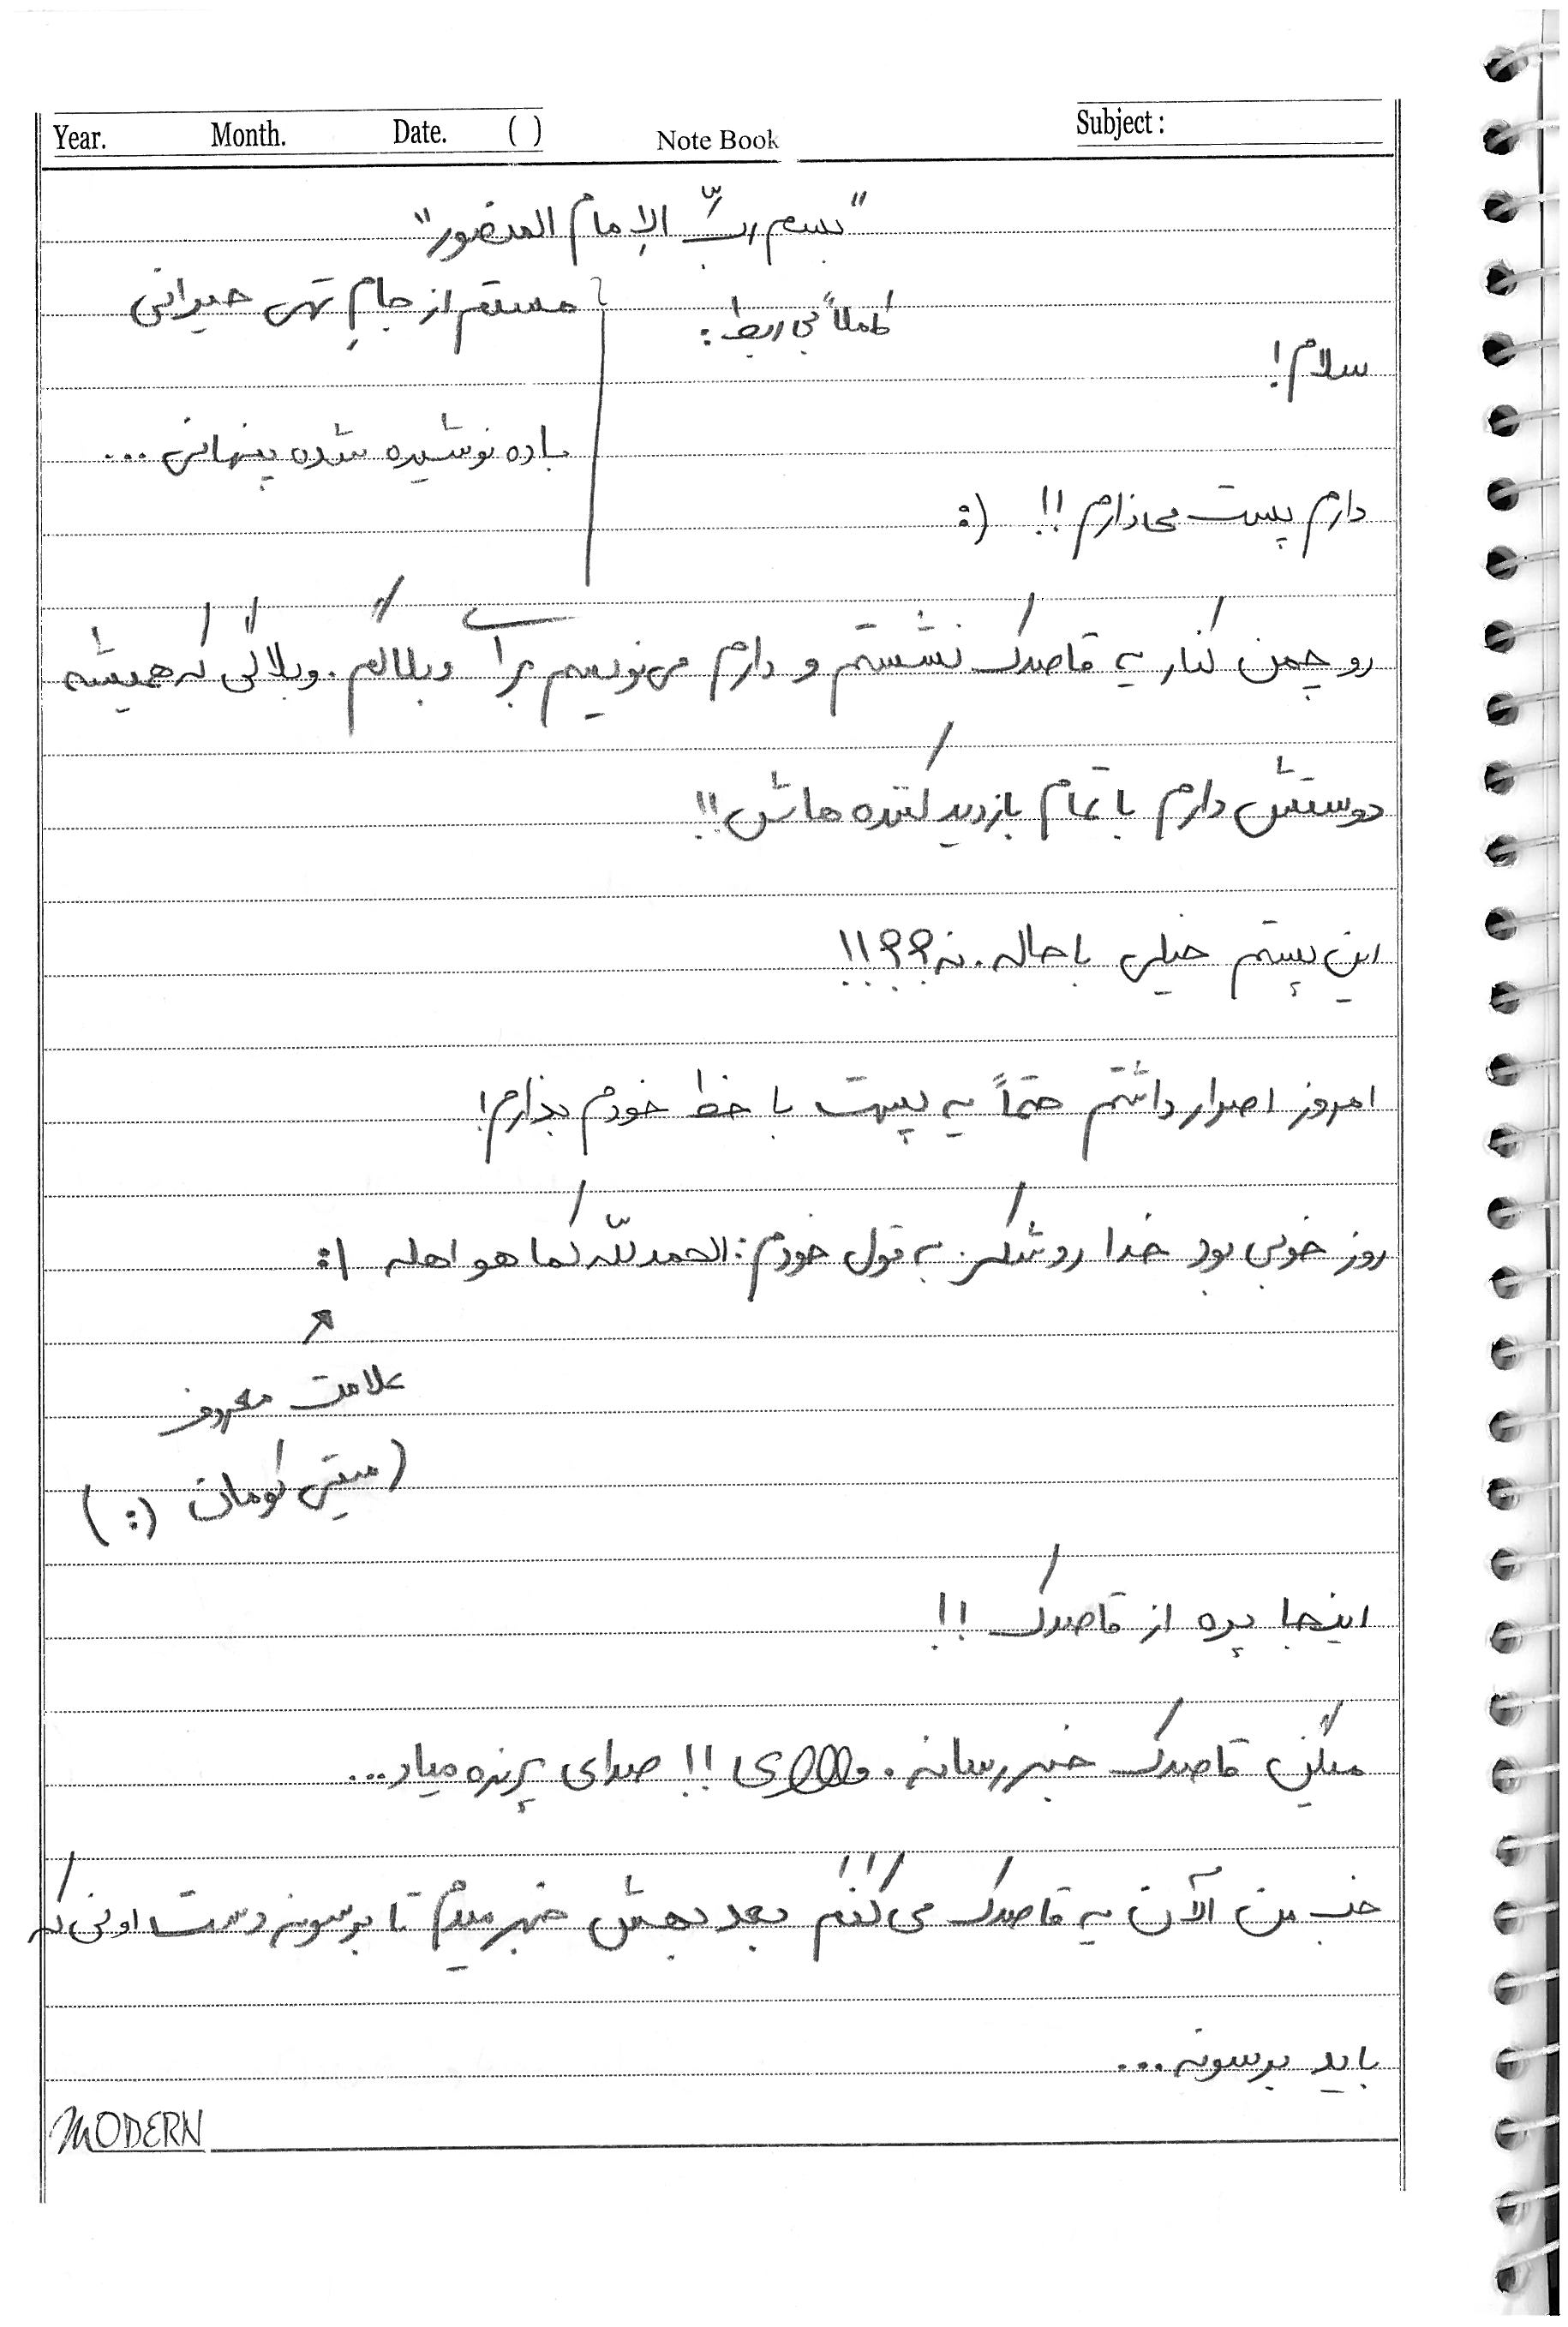 Year. Month. Date. ( ) Note Book Subject:
"بسم ربّ الإمام المنصور"
کاملاً بی ربط:
مستم از جامِ تهی حیرانی
باده نوشیده شده پنهانی ...
سلام!
دارم پست میذارم!! :)
رو چمن کنار یه قاصدک نشستم و دارم می‌نویسم برا وبلاگم. وبلاگی که همیشه
دوستش دارم با تمام بازدید کننده هاش!!
این پستم خیلی باحاله. نه؟؟!!
امروز اصرار داشتم حتماً یه پست با خط خودم بذارم!
روز خوبی بود خدا رو شکر. به قول خودم: الحمد للّه کما هو اهله :|
علامت معروف
( میتی کومان :) )
اینجا پره از قاصدک!!
میگن قاصدک خبر رسانه. وااااای!! صدای پرنده میاد...
خب من الآن یه قاصدک می‌کَنَم بعد بهش خبر میدم تا برسونه دست اونی که
باید برسونه...
MODERN